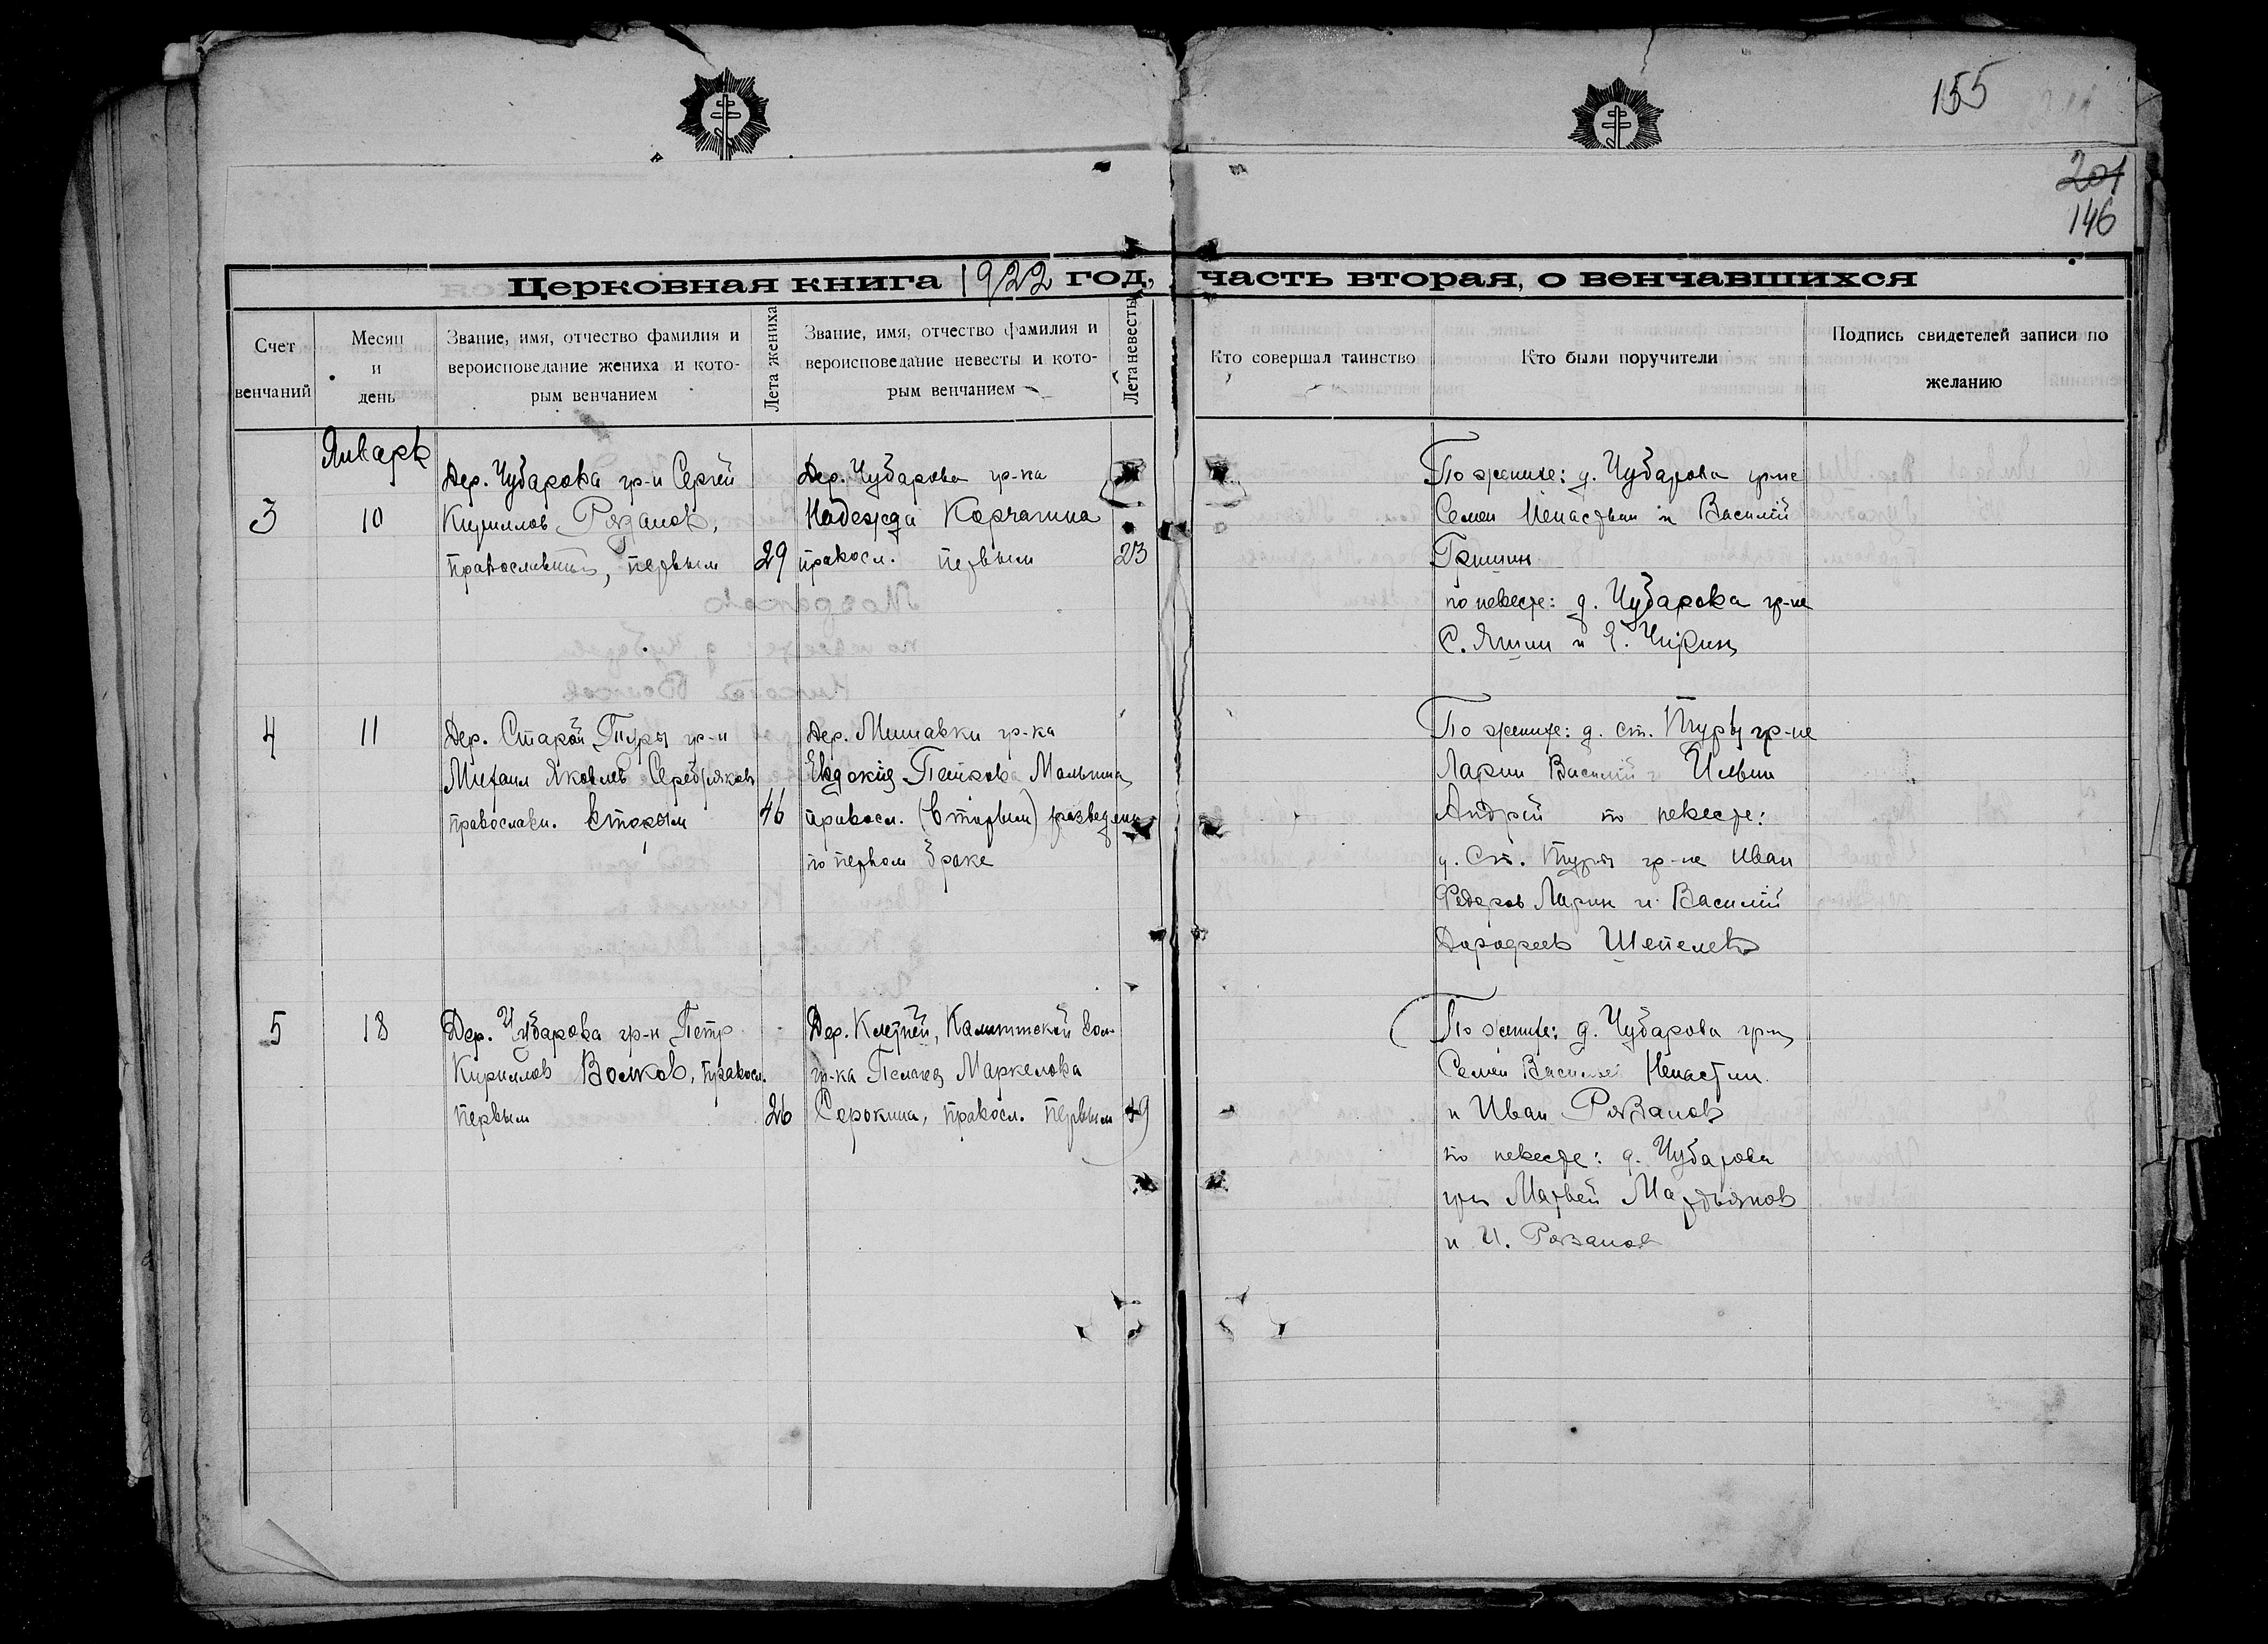 155
201
146
Церковная книга 1922 год, часть вторая, о венчавшихся
Счет венчаний
Месяц и день
Звание, имя, отчество фамилия и вероисповедание жениха и которым венчанием
Лета жениха
Звание, имя, отчество фамилия и вероисповедание невесты и которым венчанием
Лета невесты
Кто совершал таинство
Кто были поручители
Подпись свидетелей записи по желанию
Январь
3
10
Дер. Чубарова гр-н Сергей
Кириллов Рязанов,
православный, первым
29
Дер. Чубарова гр-ка
Надежда Корчагина
правосл. первым
23
По женихе: д. Чубарова гр-не
Семен Ненастьин и Василий
Гришин
по невесте: д. Чубарова гр-не
С. Яшин и
4
11
Дер. Старой Туры гр-н
Михаил Яковлев Серебряков
православн. вторым
46
Дер. Мишавки гр-ка
Евдокия Малькина
правосл. (вторым) разведена
по первом браке
По женихе: д. ст. Туры гр-не
Ларин Василий и Ильин
Андрей по невесте:
д. Ст. Туры гр-не Иван
Федоров Ларин и Василий
Дорофеев Шепелев
5
18
Дер. Чубарова гр-н Петр
Кириллов Волков, правосл.
первым
26
Дер. Клетней, вол.
гр-ка Пелагея Маркелова
Сорокина, правосл. первым
19
По женихе: д. Чубарова гр-н
Семен Василий Ненастин
и Иван Рязанов
по невесте: д. Чубарова
гр-н Матвей Мардьянов
и И. Рязанов